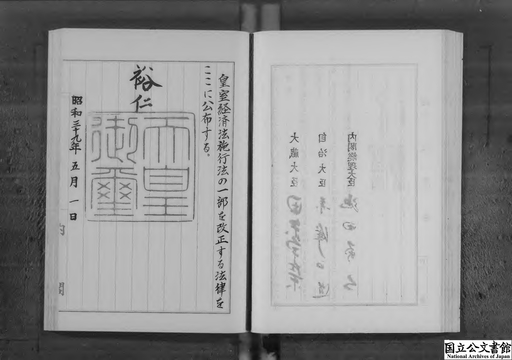 皇室経済法施行法の一部を改正する法律を
ここに公布する。
裕仁
天皇
御璽
昭和三十九年五月一日
内閣総理大臣
自治大臣
大蔵大臣
国立公文書館
National Archives of Japan